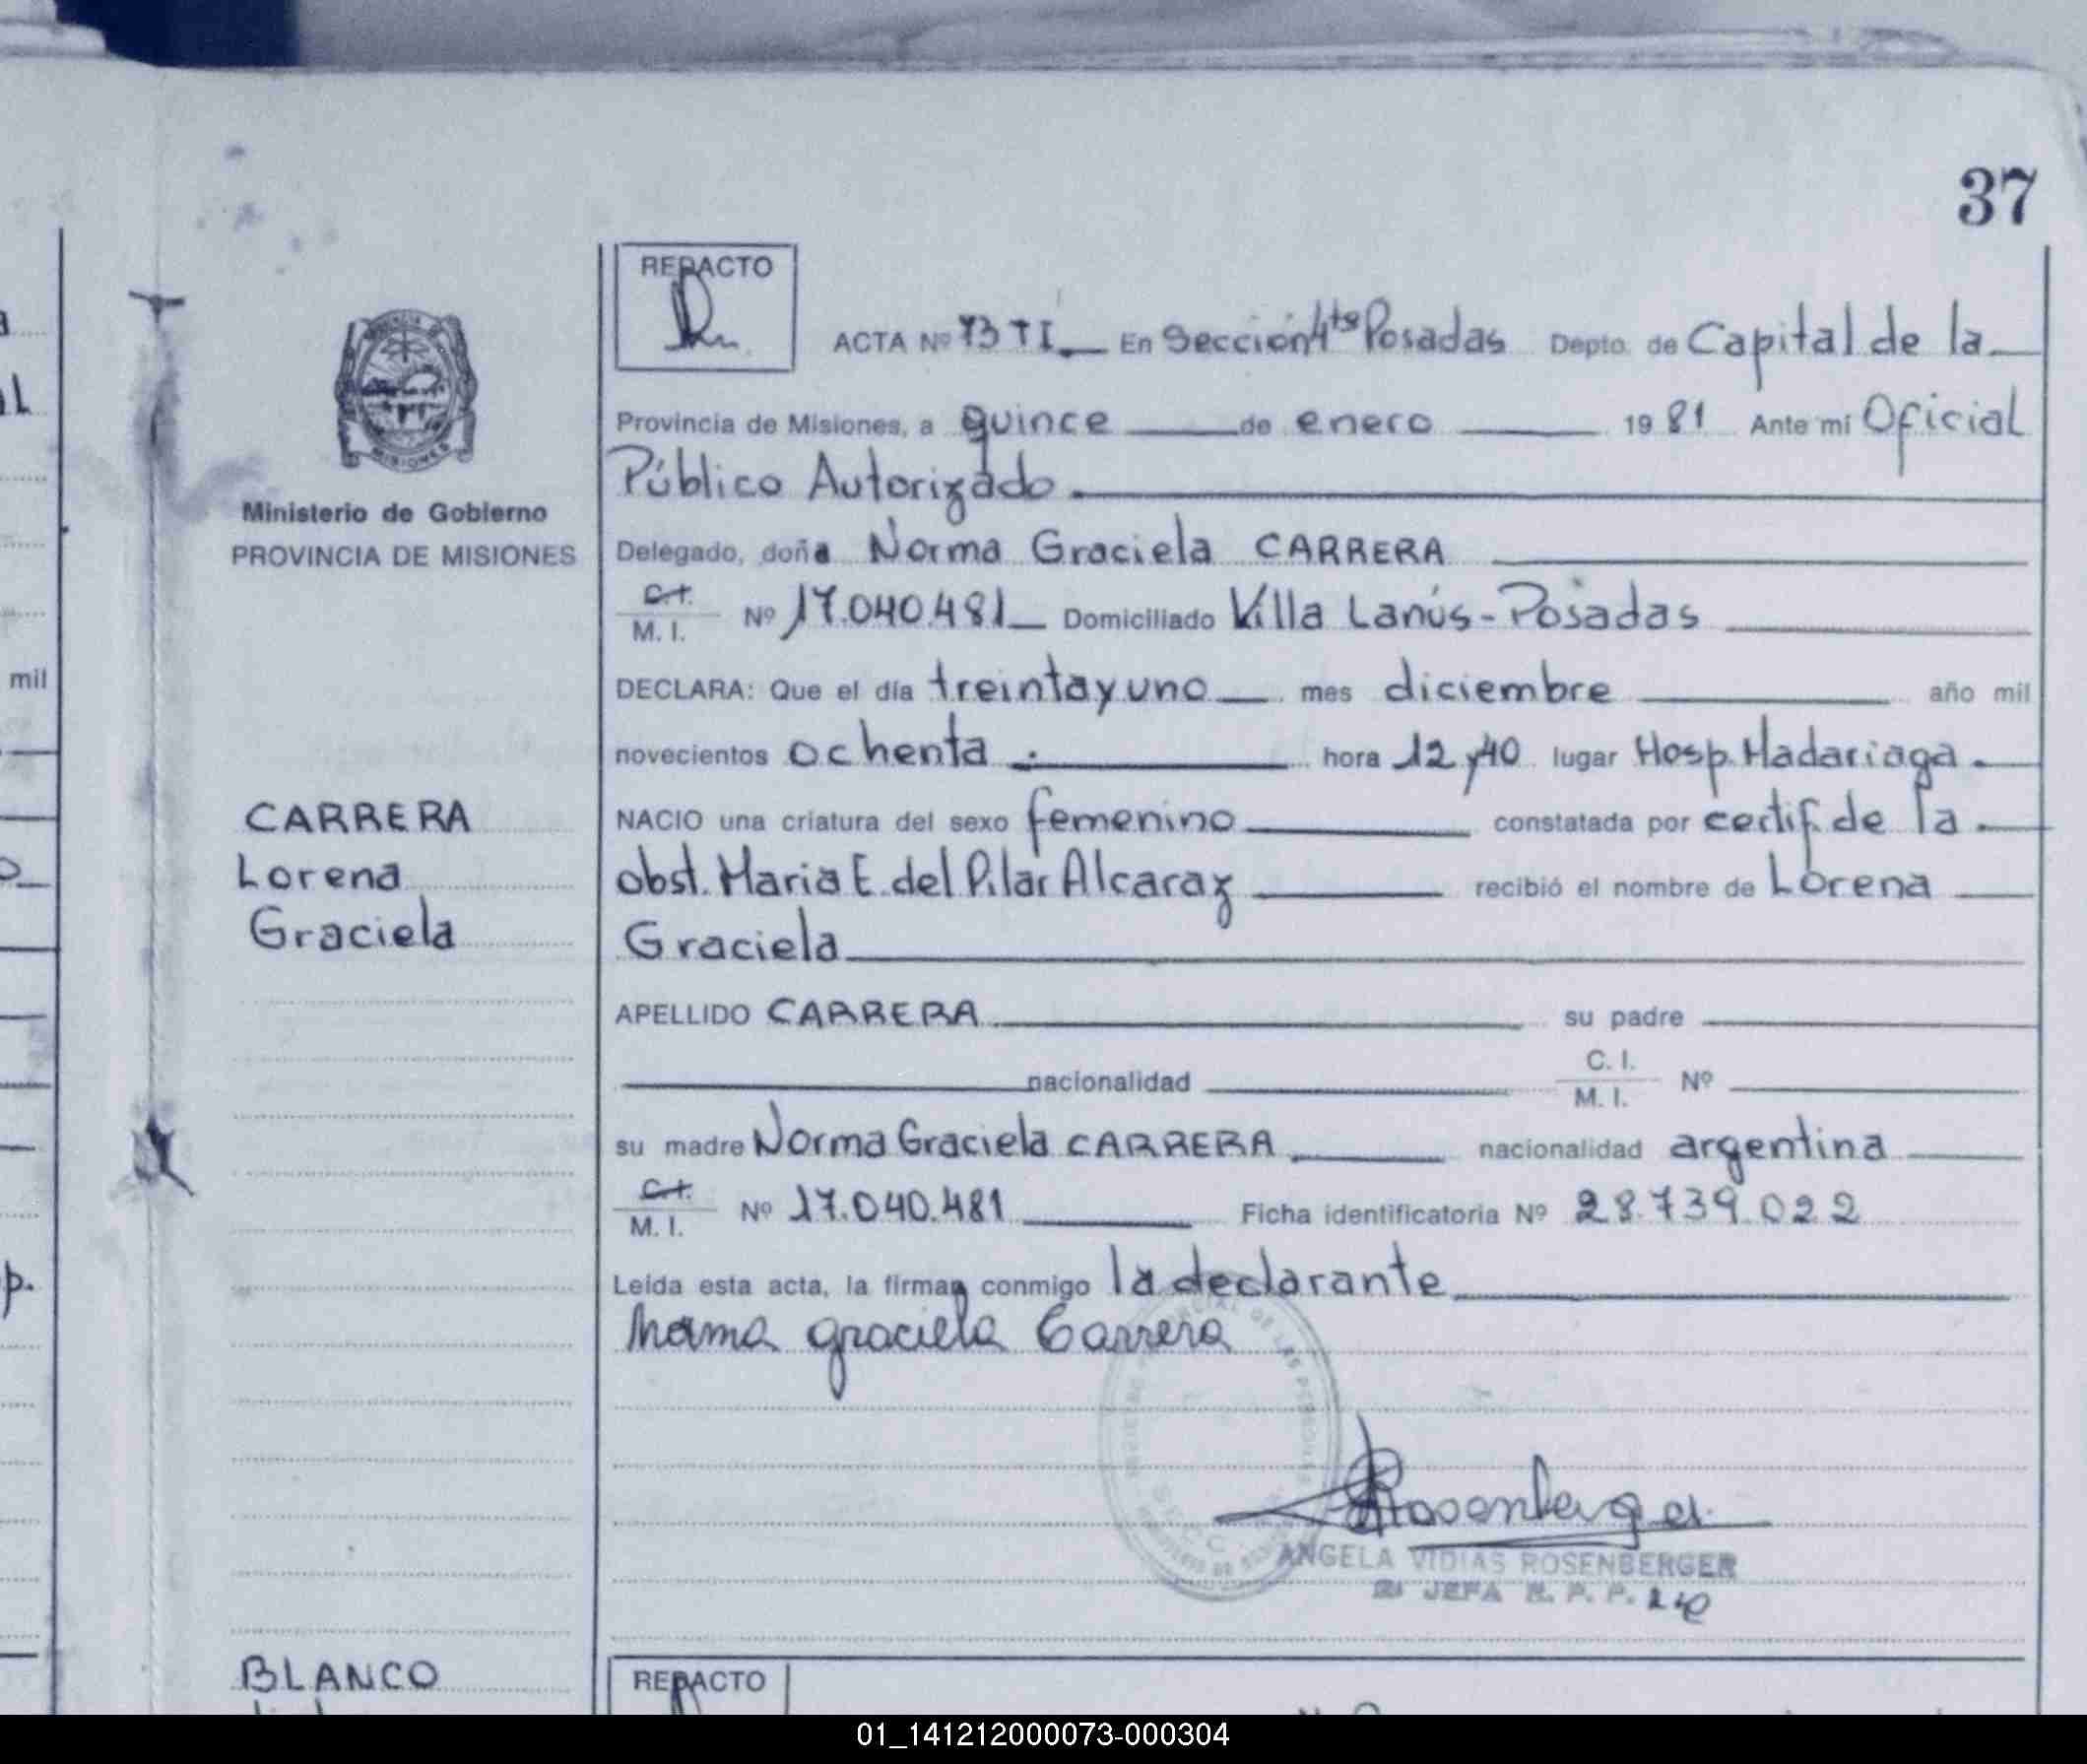 37
REDACTO
ACTA Nº 73 TI En Sección 4ta Posadas Depto. de Capital de la
Provincia de Misiones, a quince de enero 1981 Ante mi Oficial
Público Autorizado.
Ministerio de Gobierno
PROVINCIA DE MISIONES
Delegado, doña Norma Graciela CARRERA
C.I.
M. I. Nº 17.040.481 Domiciliado Villa Lanús-Posadas
mil
DECLARA: Que el día treinta y uno mes diciembre año mil
novecientos ochenta.- hora 12 y 40 lugar Hosp. Madariaga.
CARRERA
Lorena
Graciela
NACIO una criatura del sexo femenino constatada por certif. de la
obst. Maria E. del Pilar Alcaraz recibió el nombre de Lorena
Graciela
APELLIDO CARRERA su padre
nacionalidad C. I.
M. I. Nº
su madre Norma Graciela CARRERA nacionalidad argentina
C.I.
M. I. Nº 17.040.481 Ficha identificatoria Nº 28.739.022
p.
Leída esta acta, la firman conmigo la declarante
Norma graciela Carrera
Rosenberger
ANGELA VIDIAS ROSENBERGER
JEFA R. P. P.
BLANCO
REDACTO
01_141212000073-000304